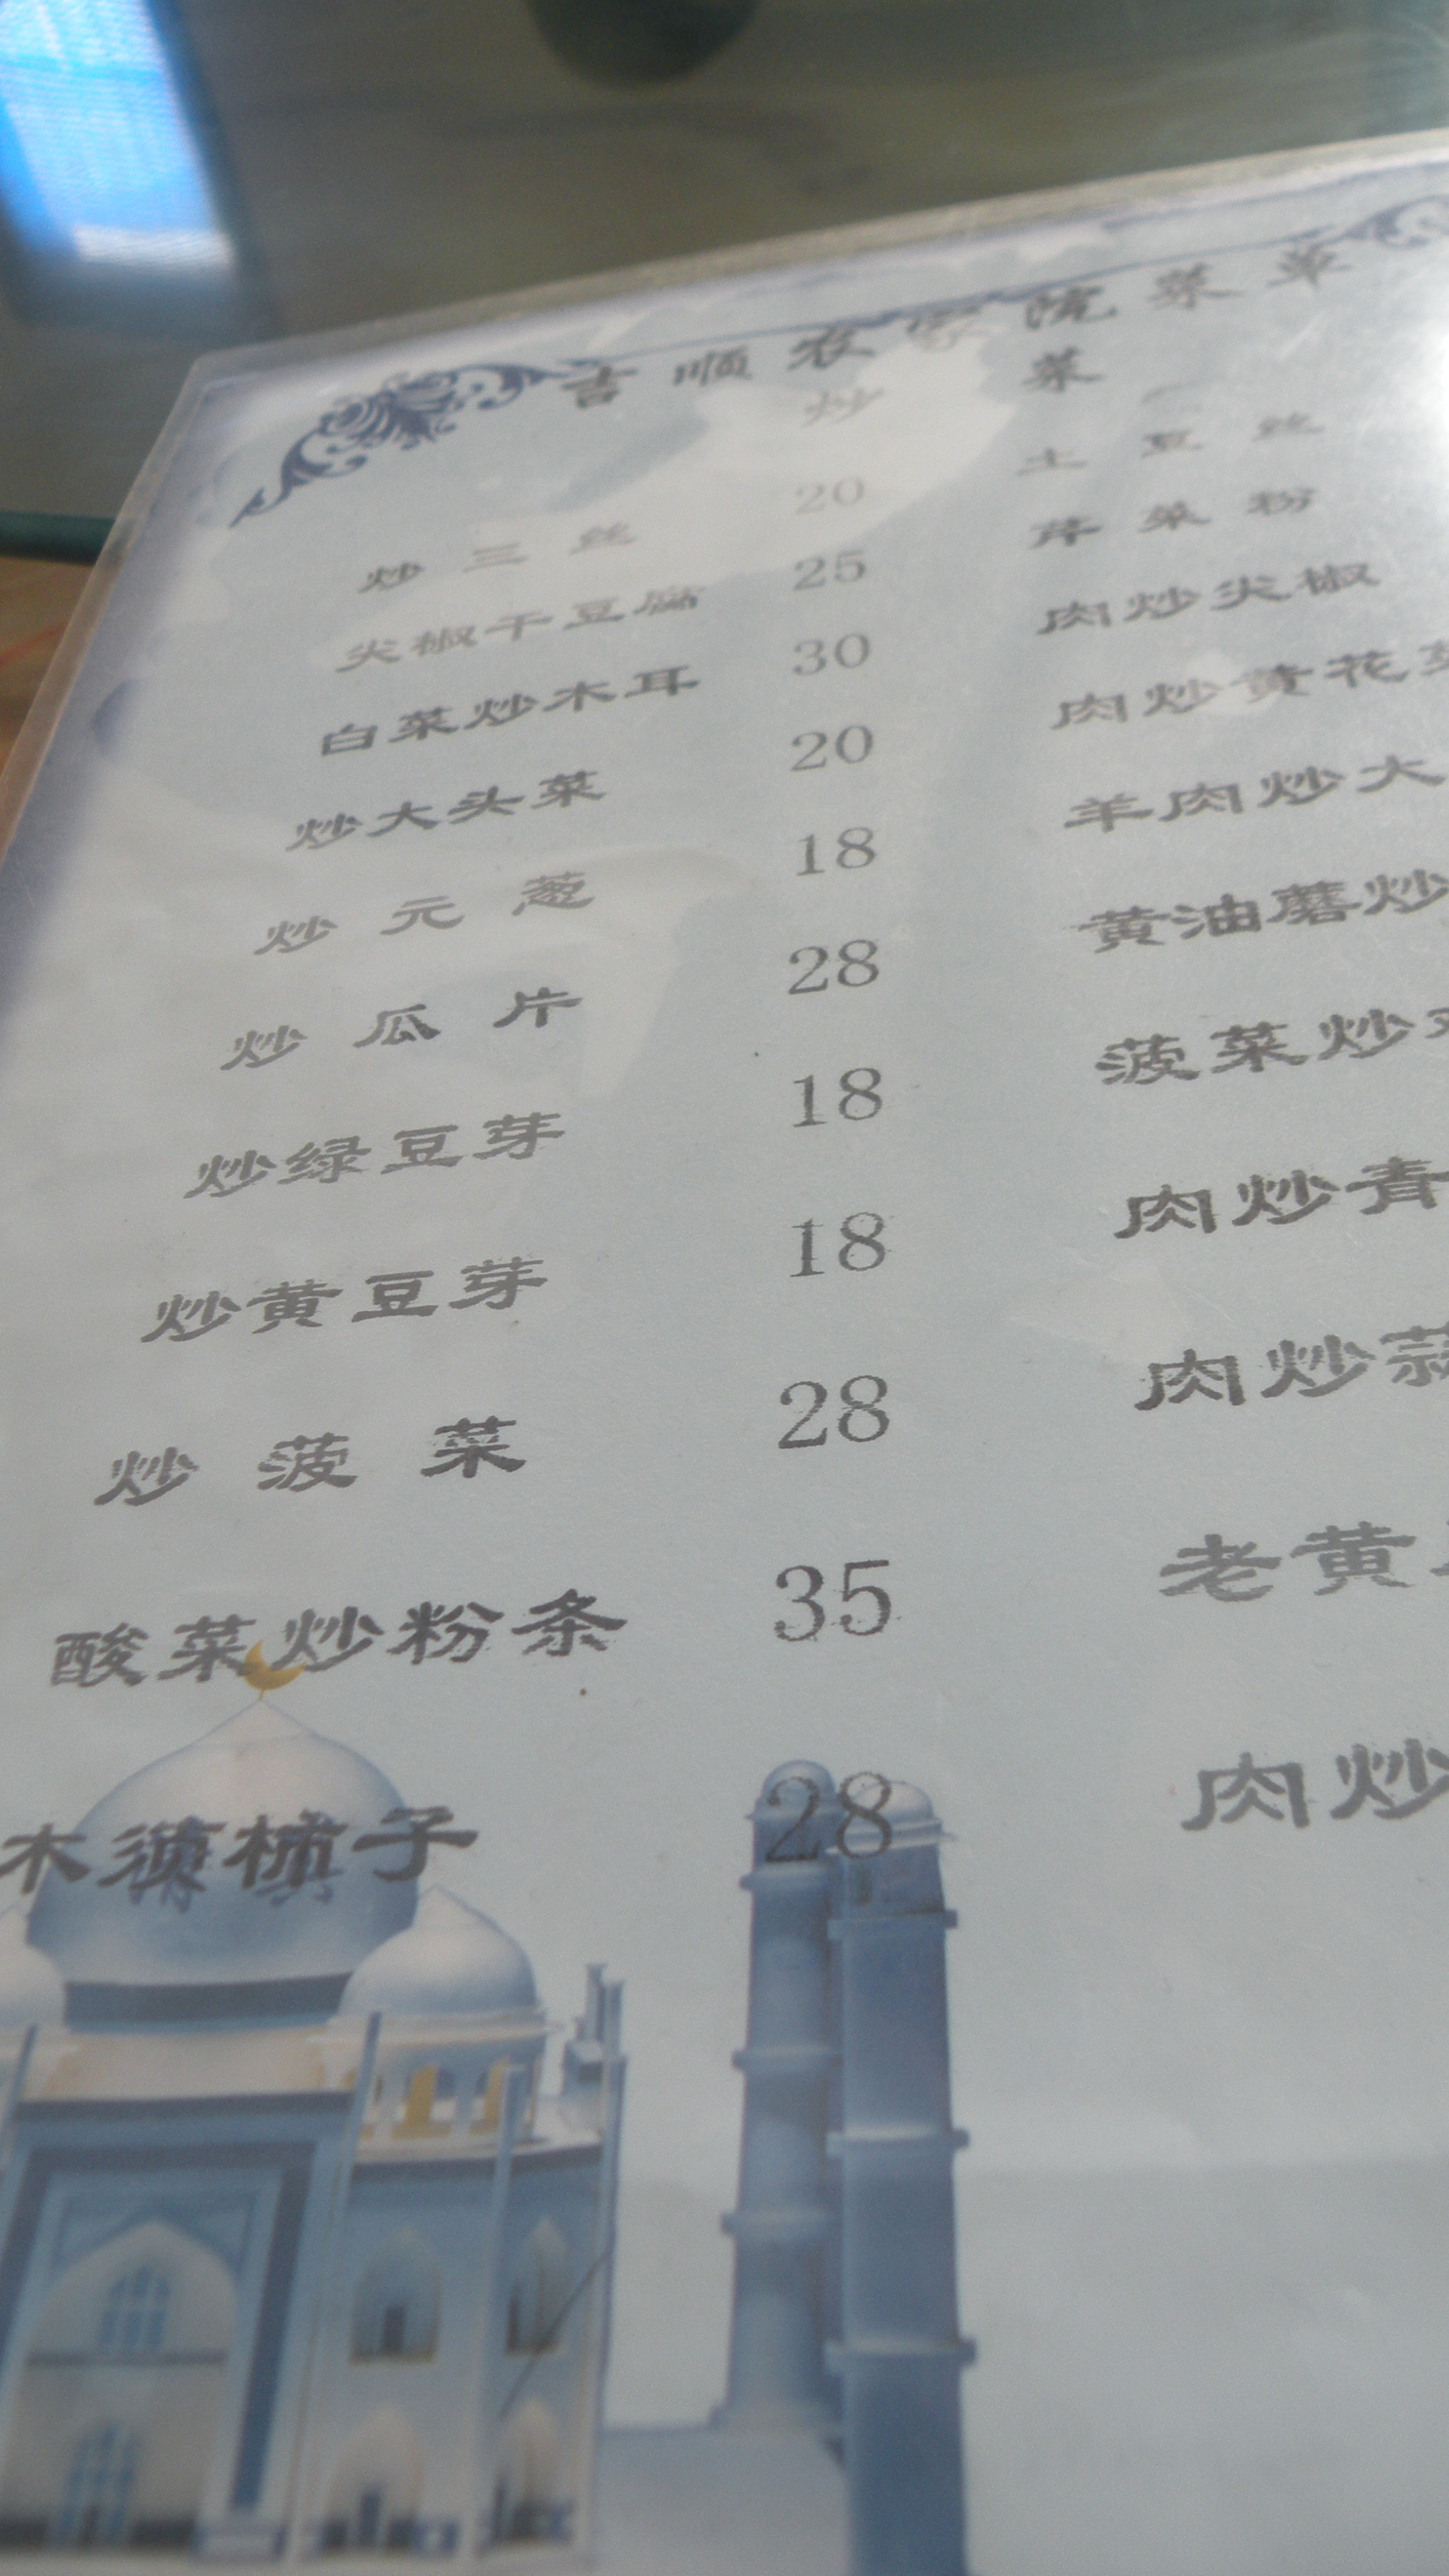 吉顺农家院菜单
炒 菜
炒三丝 20 土豆丝
尖椒干豆腐 25 芹菜粉
白菜炒木耳 30 肉炒尖椒
炒大头菜 20 肉炒黄花
炒元葱 18 羊肉炒大
炒瓜片 28 黄油蘑炒
炒绿豆芽 18 菠菜炒
炒黄豆芽 18 肉炒青
炒菠菜 28 肉炒蒜
酸菜炒粉条 35 老黄
木须柿子 28 肉炒